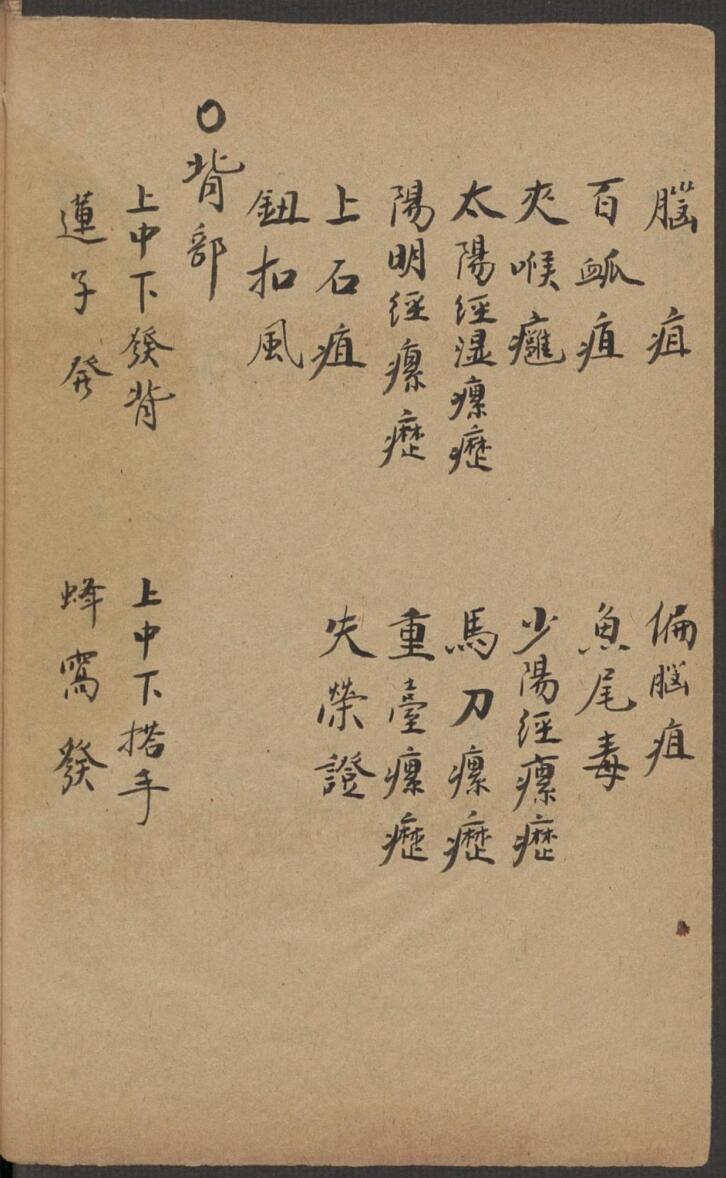 腦疽　偏腦疽
百䘐疽　魚尾毒
夾喉癰　少陽經瘰癧
太陽經湿瘰癧　馬刀瘰癧
陽明經瘰癧　重臺瘰癧
上石疽　失榮證
鈕扣風
○背部
上中下發背　上中下搭手
蓮子發　蜂窩發